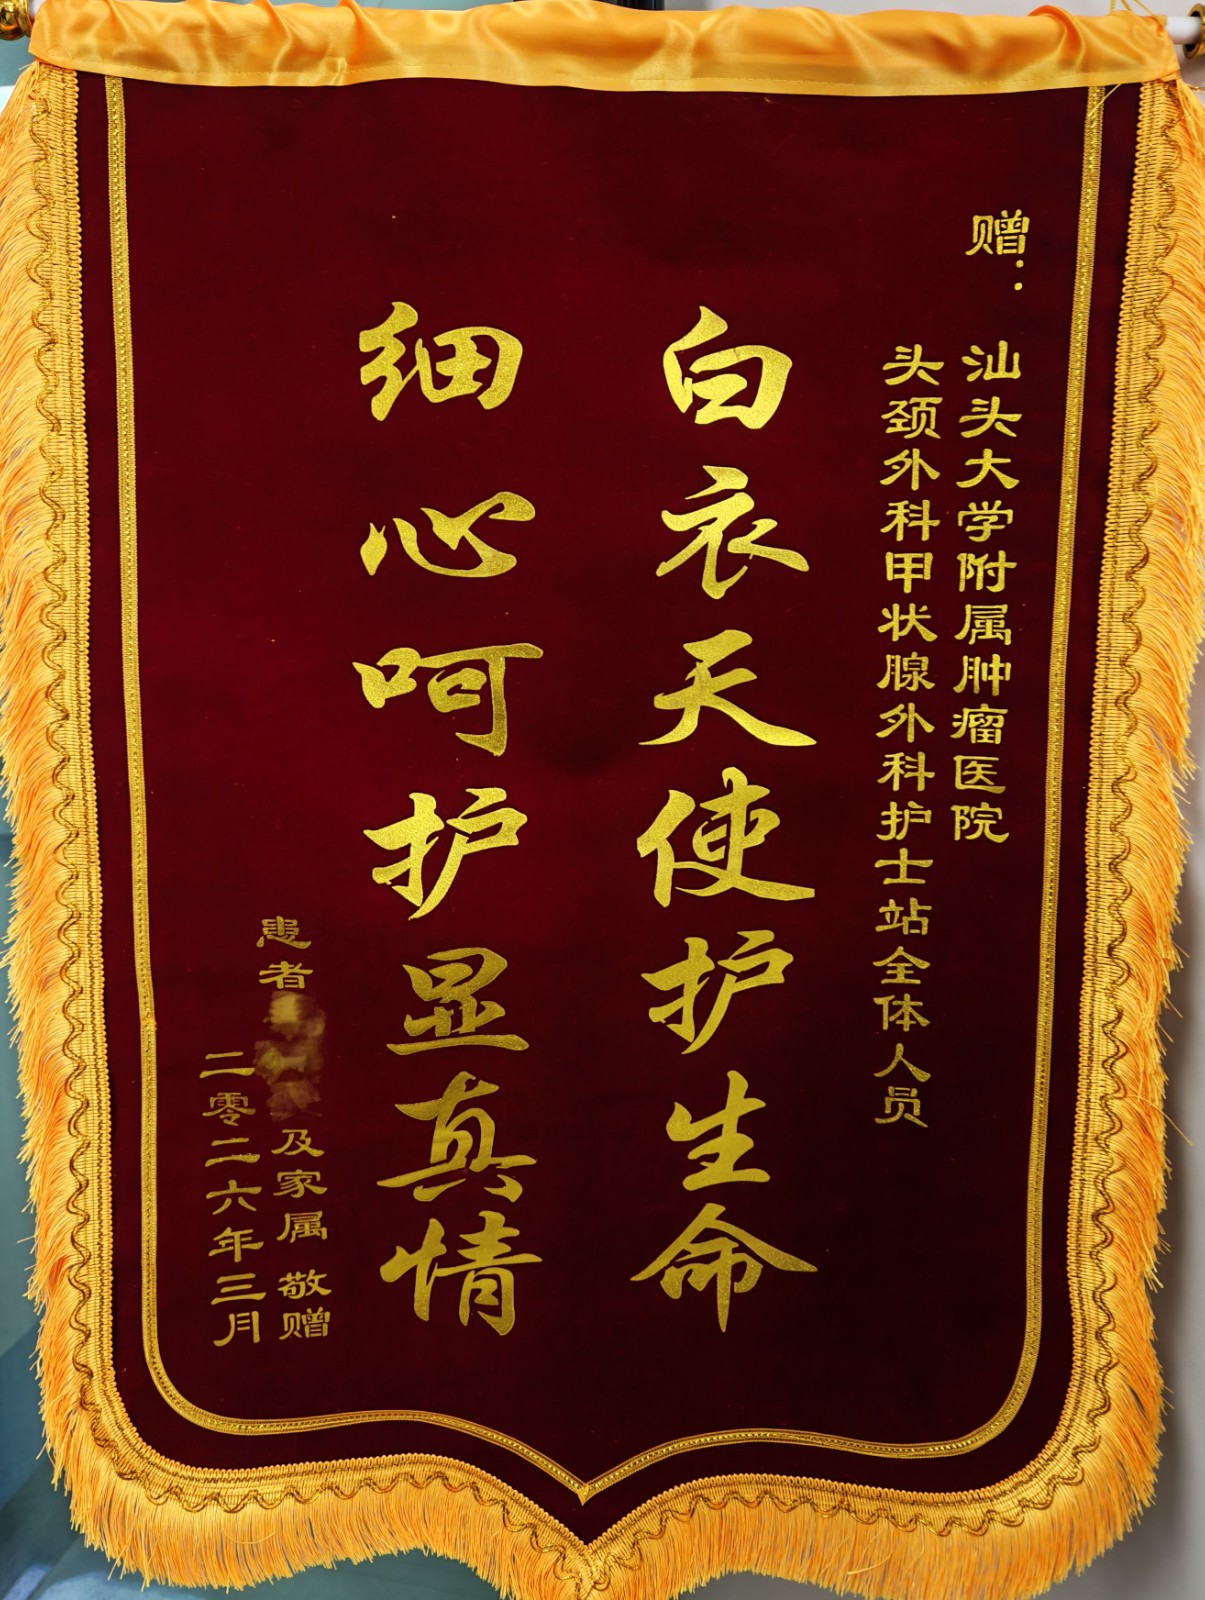 赠：汕头大学附属肿瘤医院
头颈外科甲状腺外科护士站全体人员
白衣天使护生命
细心呵护显真情
患者 及家属 敬赠
二零二六年三月